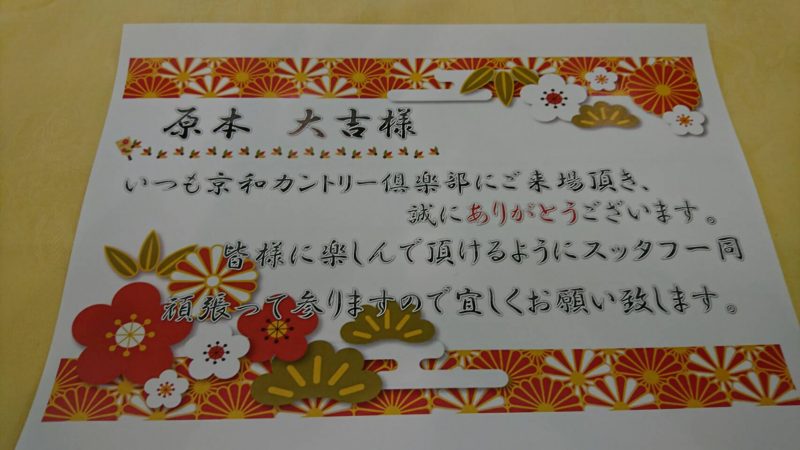 原本　大吉様
いつも京和カントリー倶楽部にご来場頂き、
誠にありがとうございます。
皆様に楽しんで頂けるようにスッタフ一同
頑張って参りますので宜しくお願い致します。